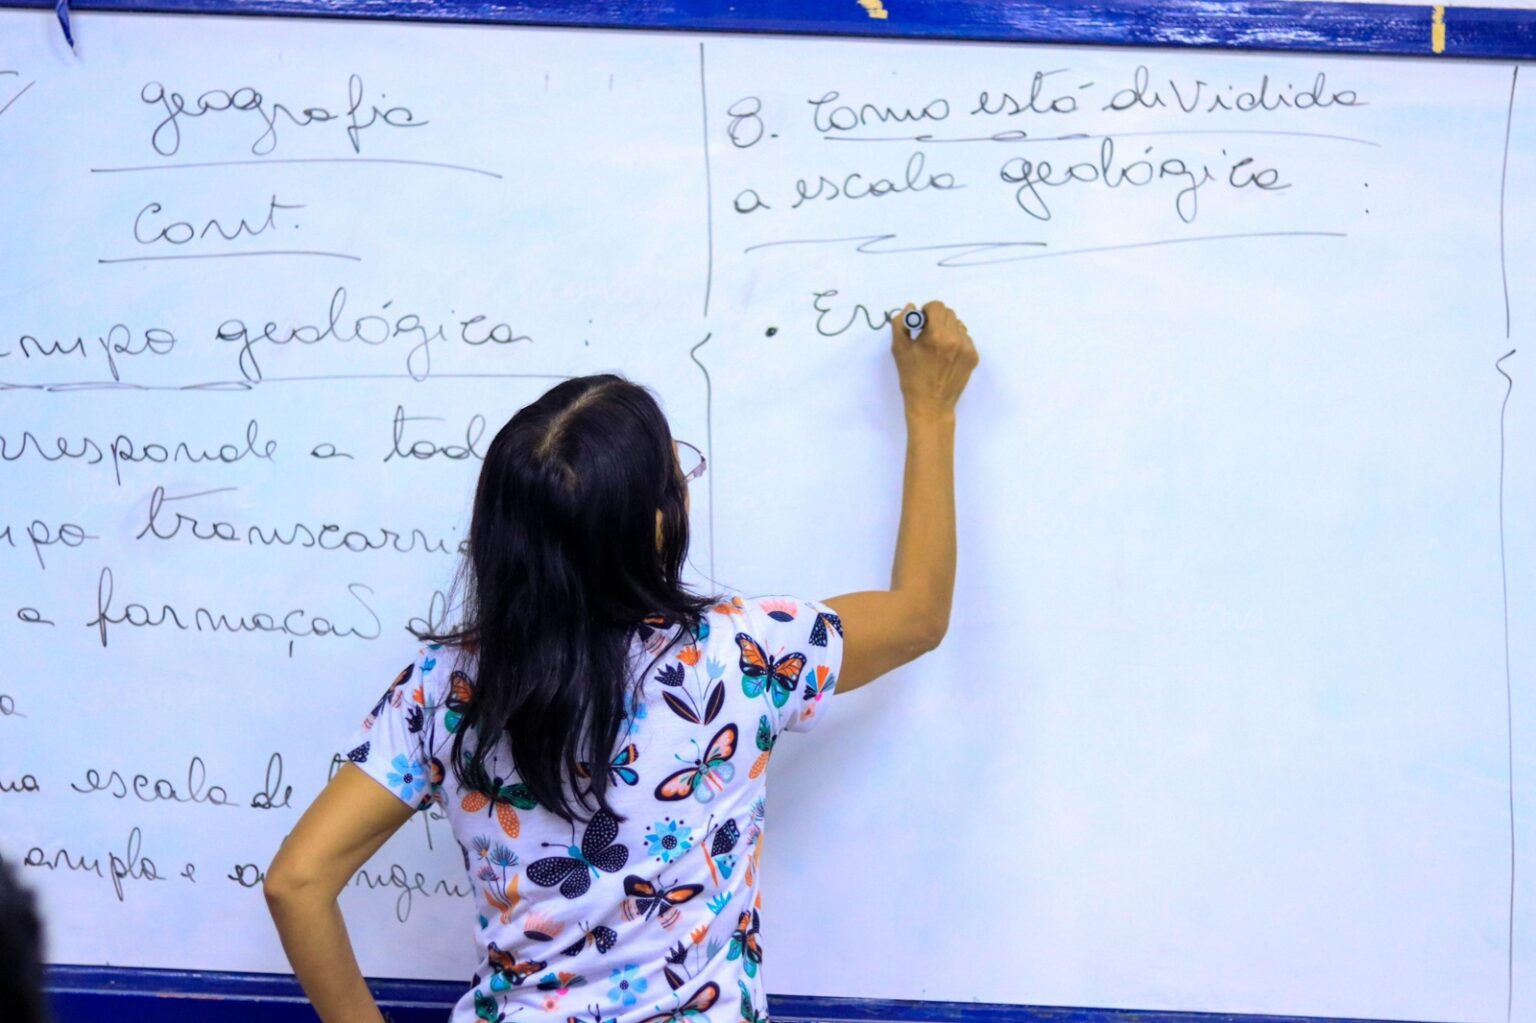 geografia
Cont.
geológica :
rresponde a tod
transcorri
a formação d
a
escala de
ampla e
8. Como está dividida
a escala geológica :
• Er